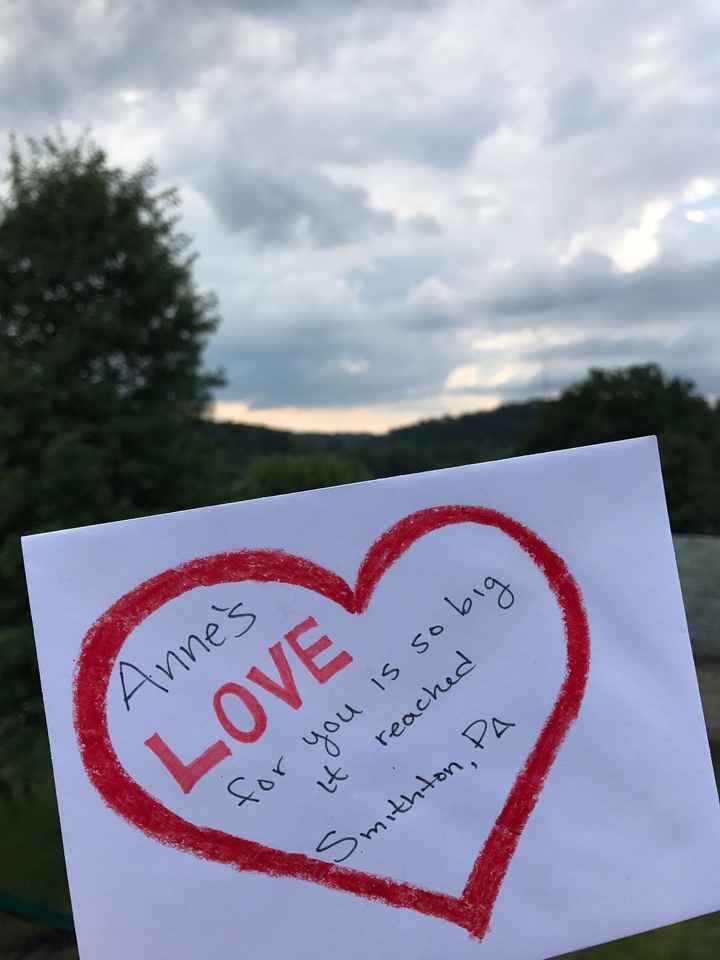 Anne's
LOVE
for you is so big
it reached
Smithton, PA